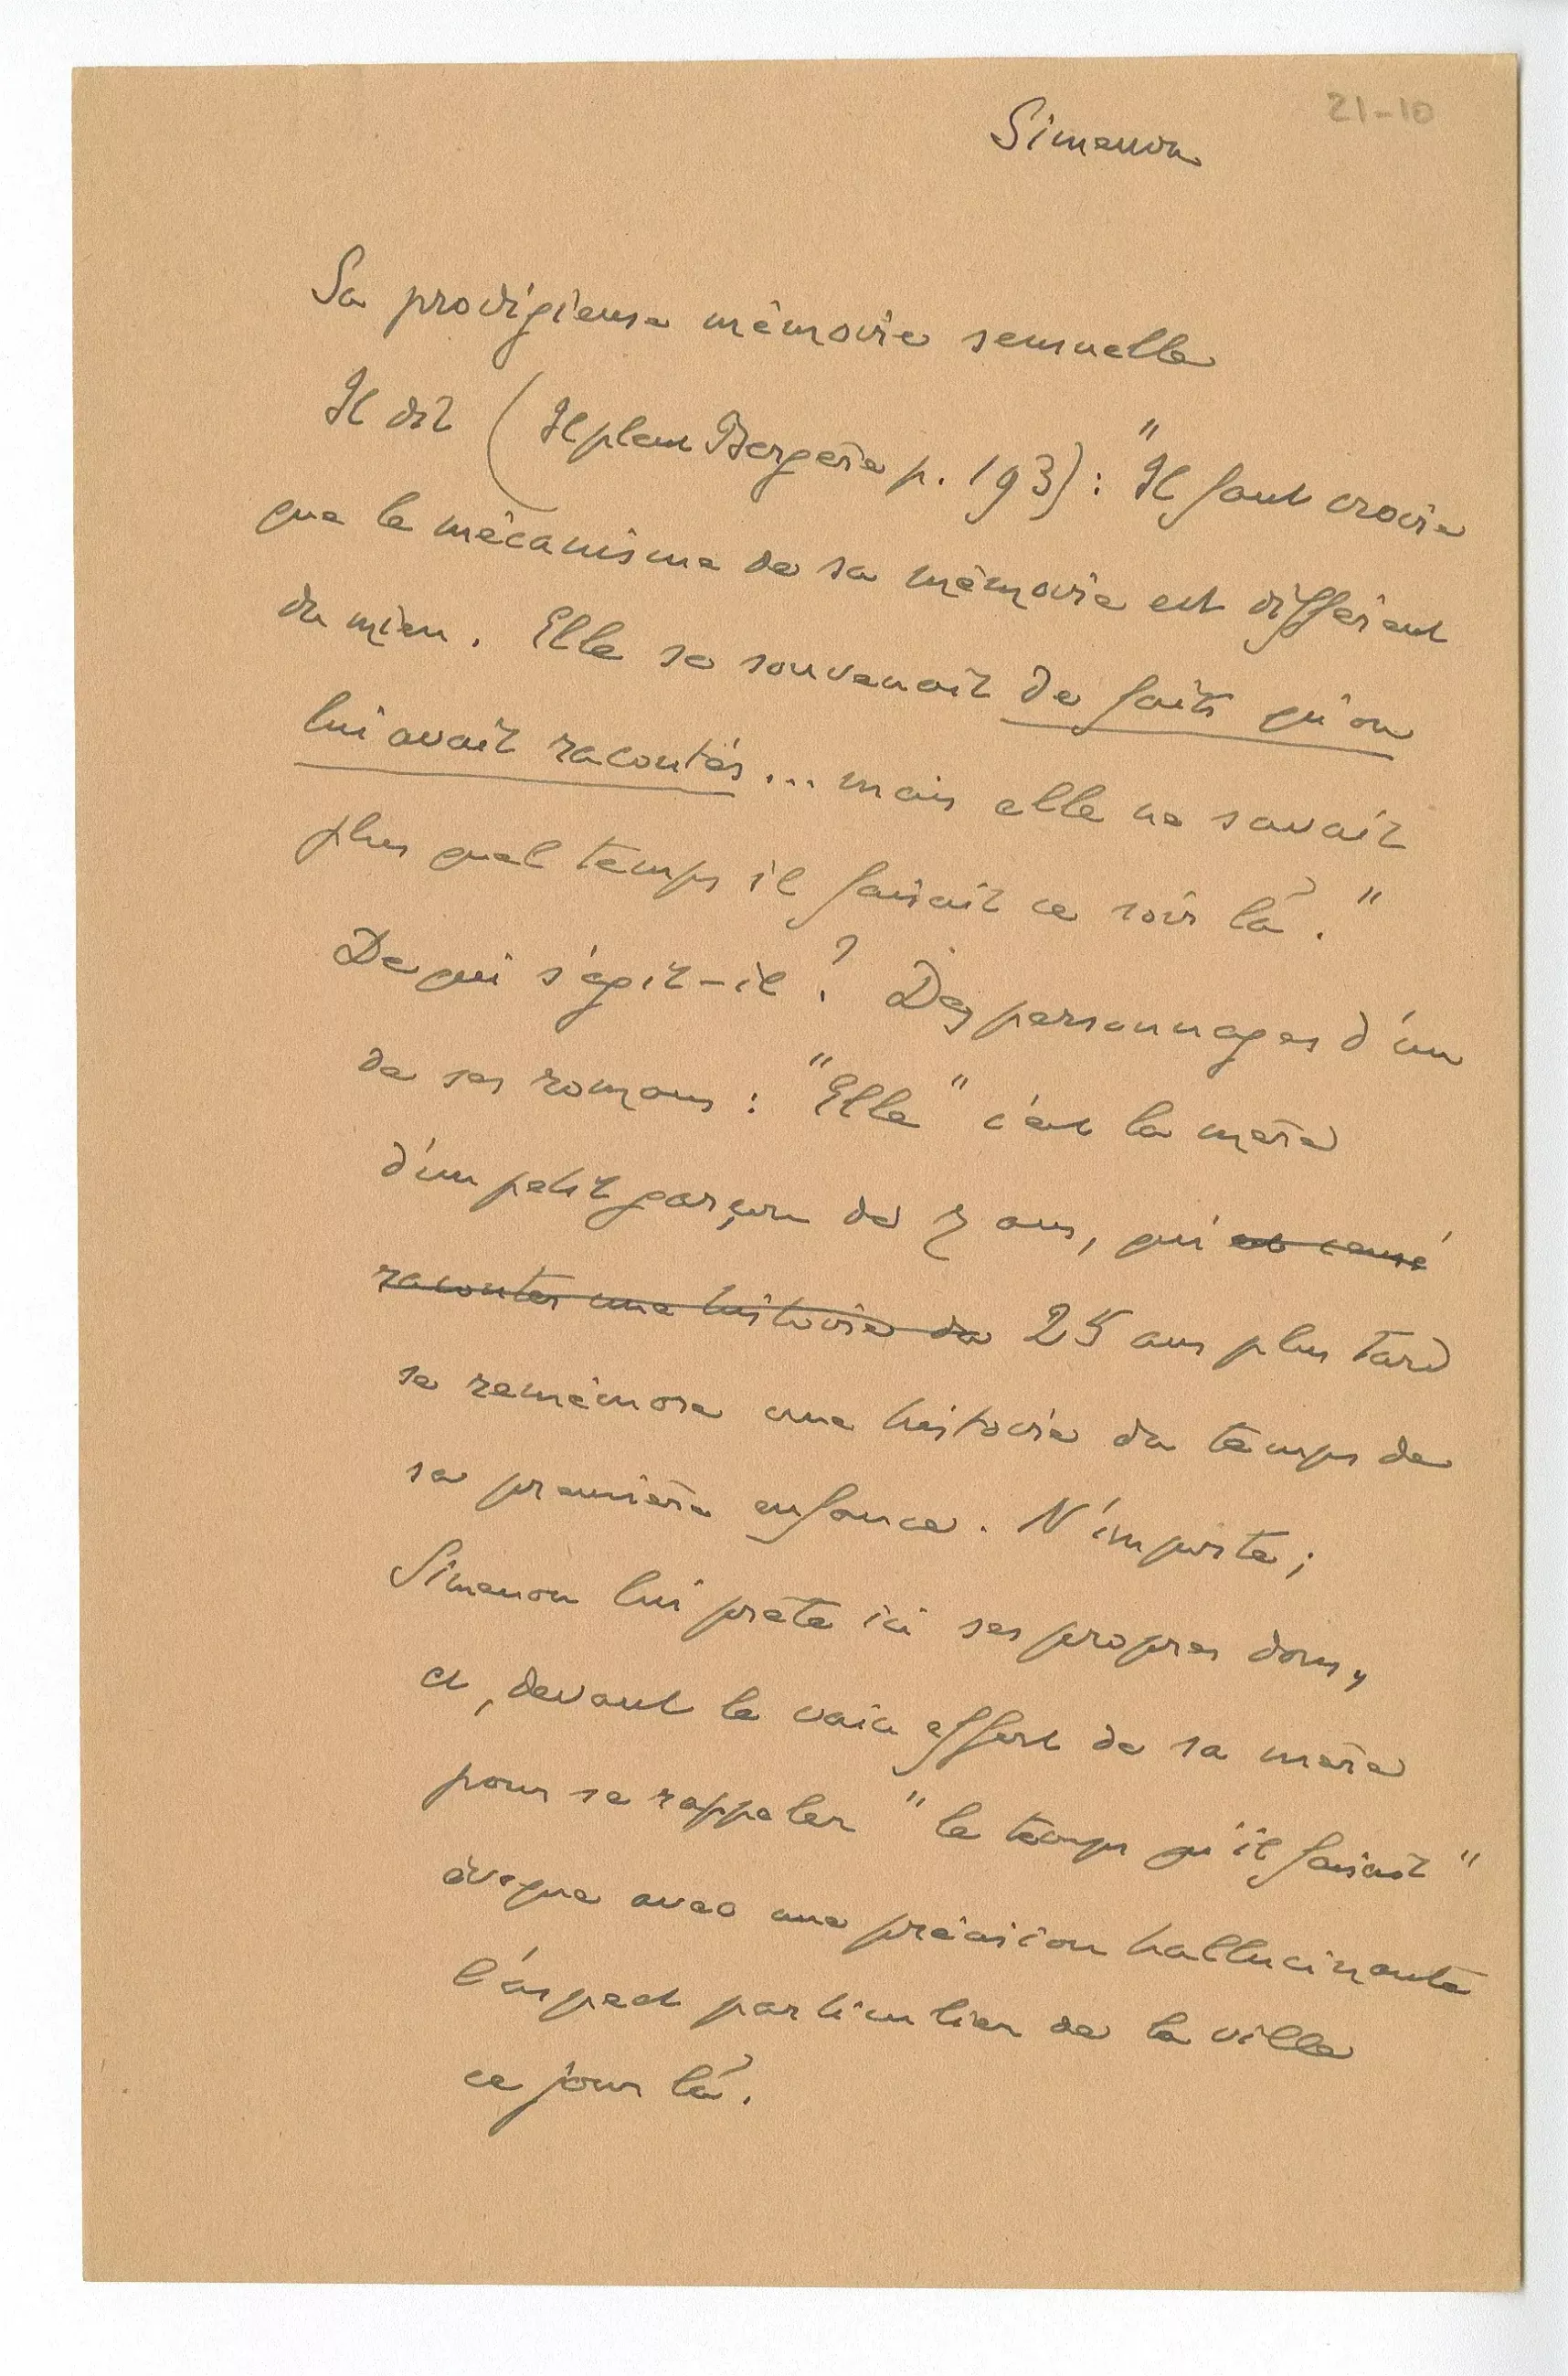 21-10
Simenon
Sa prodigieuse mémoire sensuelle
Il dit (Il pleut Bergère p. 193) : "Il faut croire
que le mécanisme de sa mémoire est différent
du mien. Elle se souvenait de faits qu'on
lui avait racontés... mais elle ne savait
plus quel temps il faisait ce soir là."
De qui s'agit-il ? Des personnages d'un
de ses romans : "Elle" c'est la mère
d'un petit garçon de 7 ans, qui est censé
raconter une histoire de 25 ans plus tard
se remémore une histoire du temps de
sa première enfance. N'importe ;
Simenon lui prête ici ses propres dons,
et, devant le vain effort de sa mère
pour se rappeler "le temps qu'il faisait"
évoque avec une précision hallucinante
l'aspect particulier de la ville
ce jour là.